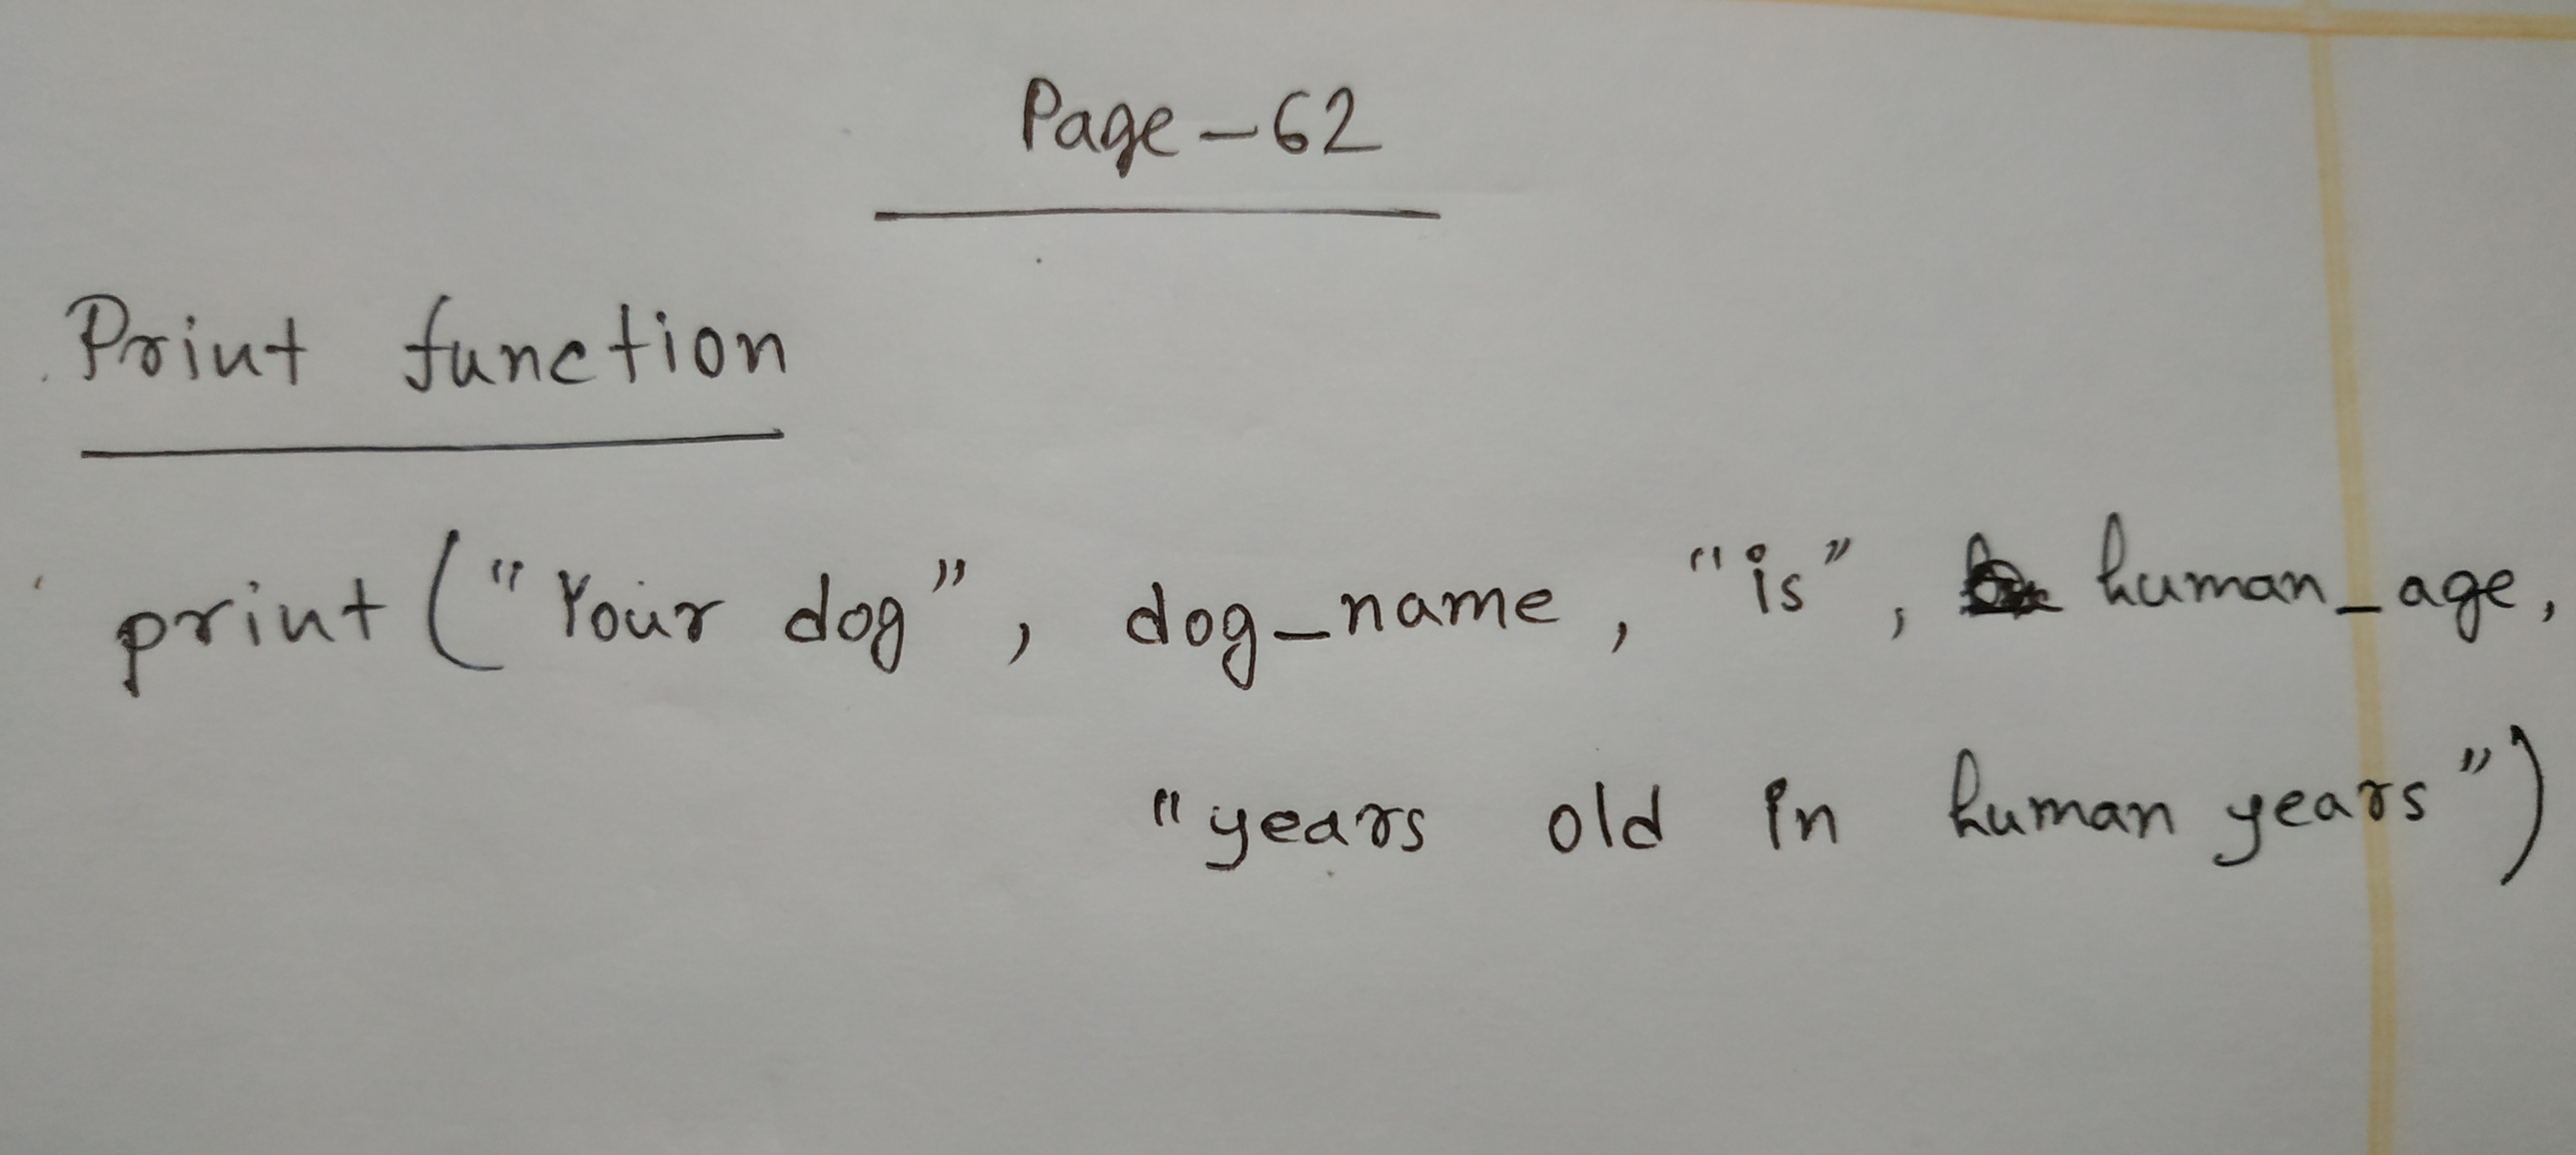 Page-62
Print function
print ("Your dog", dog_name, "is", human_age,
"years old in human years")